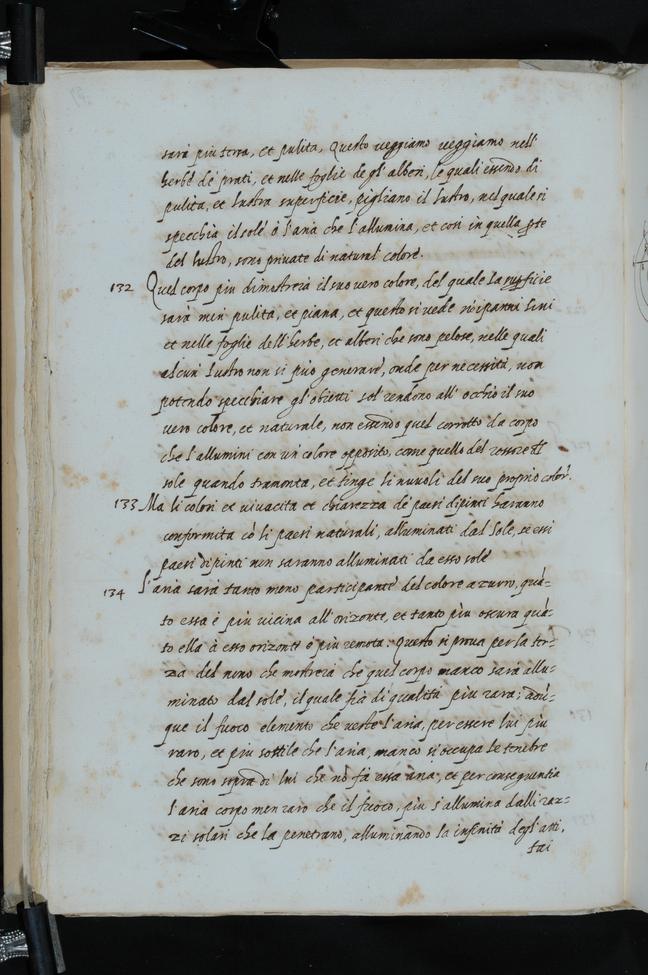 sarà piu tersa, et pulita, Questo veggiamo veggiamo nell'
herbe de prati, et nelle foglie de gl' alberi, le quali essendo di
pulita, et lustra superficie, pigliano il lustro, nel quale si
specchia il sole ò l'aria che l'allumina, et così in quella pte
del lustro, sono private di natural colore.
132 Quel corpo piu dimostrerà il suo vero colore, del quale la supficie
sarà men pulita, et piana, et questo si vede ne i panni lini
et nelle foglie dell' herbe, et alberi che sono pelose, nelle quali
alcun lustro non si può generare, onde per necessità, non
potendo specchiare gl' obietti sol rendono all' occhio il suo
vero colore, et naturale, non essendo quel corrotto da corpo
che l'allumini con un colore opposito, come quello del rossore del
sole quando tramonta, et tinge li nuvoli del suo proprio color.
133 Ma li colori et vivacita et chiarezza de paesi dipinti haranno
conformita cò li paesi naturali, alluminati dal Sole, se essi
paesi dipinti non saranno alluminati da esso sole
134 L'aria sarà tanto meno participante del colore azurro, quà=
to essa è piu vicina all' orizonte, et tanto più oscura quà=
to ella à esso orizonte è più remota: Questo si prova per la ter=
za del nono che mostrerà che quel corpo manco sarà allu=
minato dal sole, il quale fia di qualità piu rara; adũ=
que il fuoco elemento che veste l'aria, per essere lui piu
raro, et piu sottile che l'aria, manco si occupa le tenebre
che sono sopra di lui che nõ fa essa aria, et per conseguentia
l'aria corpo men raro che il fuoco, piu s'allumina dalli raz=
zi solari che la penetrano, alluminando la infinità degl' atti,